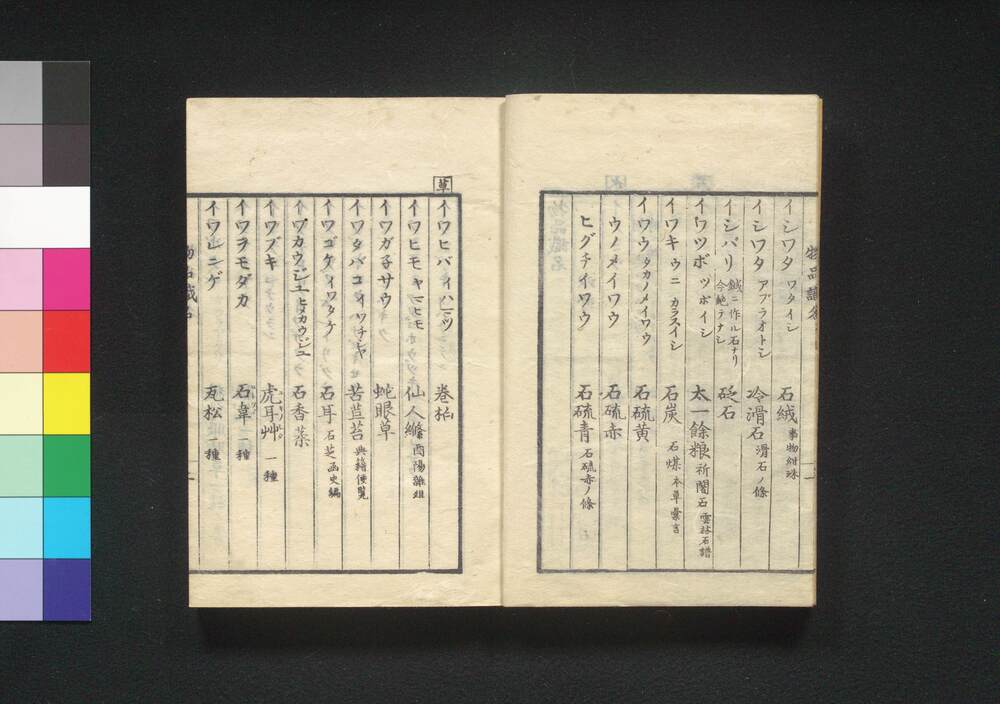 物品識名
イシワタ ワタイシ 石絨 事物紺珠
イシワタ アブラオトシ 冷滑石 滑石ノ條
イシバリ 鍼ニ作ル石ナリ 今絶テナシ 砭石
イワツボ ツボイシ 太一餘粮 祈闍石 雲林石譜
イワキ ウニ カラスイシ 石炭 石煤 本草彙言
イワウ タカノメイワウ 石硫黄
ウノメイワウ 石硫赤
ヒグチイワウ 石硫青 石硫赤ノ條
草
イワヒバ イハマツ 卷柏
イワヒモ キヒモ 仙人絛 酉陽雜俎
イワガ子サウ 蛇眼草
イワタバコ イワヂシヤ 苦苣苔 典籍便覧
イワゴケ イワタケ 石耳 石芝 函史編
イワカウジユ ヒメカウジユ 石香葇
イワブキ 虎耳艸 一種
イワヲモダカ 石韋 一種
イワレンゲ 瓦松 一種
物品識名